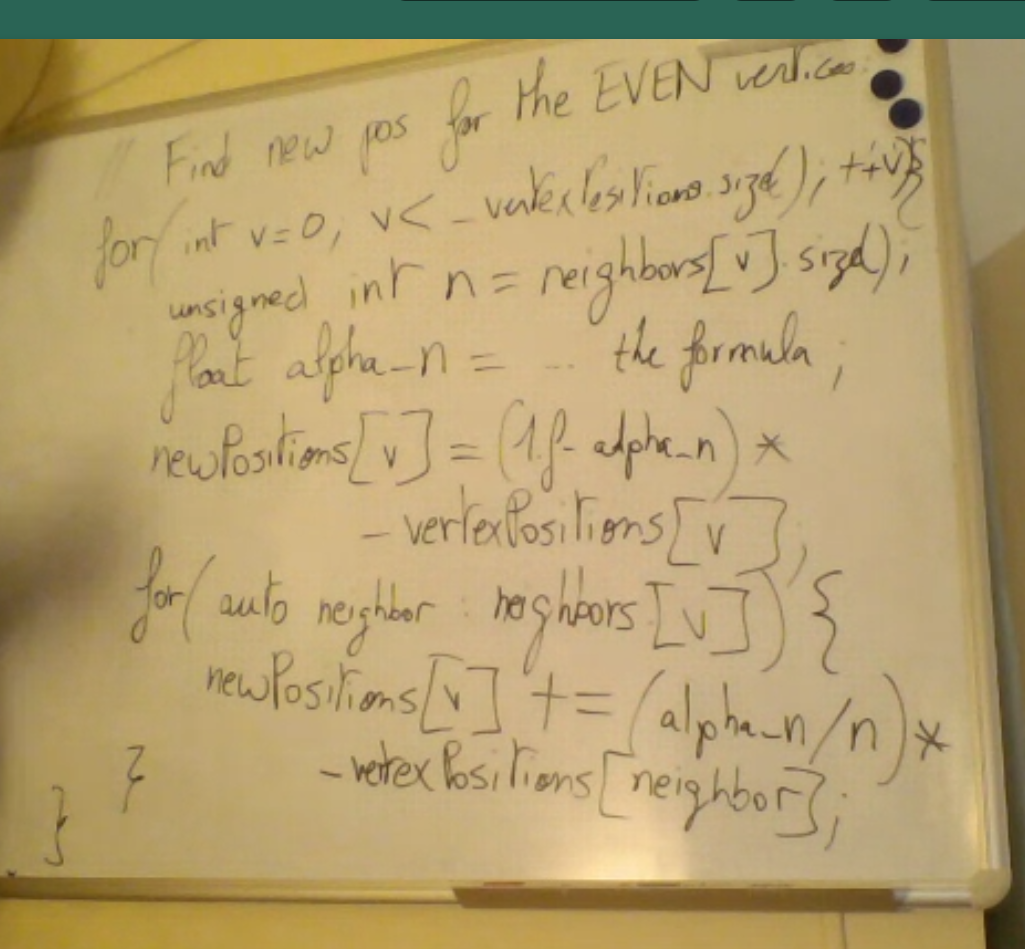 // Find new pos for the EVEN vertices:
for(int v=0; v< _vertexPositions.size(); ++v){
unsigned int n = neighbors[v].size();
float alpha_n = ... the formula;
newPositions[v] = (1.f- alpha_n) *
_vertexPositions[v];
for(auto neighbor : neighbors[v]){
newPositions[v] += (alpha_n/n)*
_vertexPositions[neighbor];
}
}